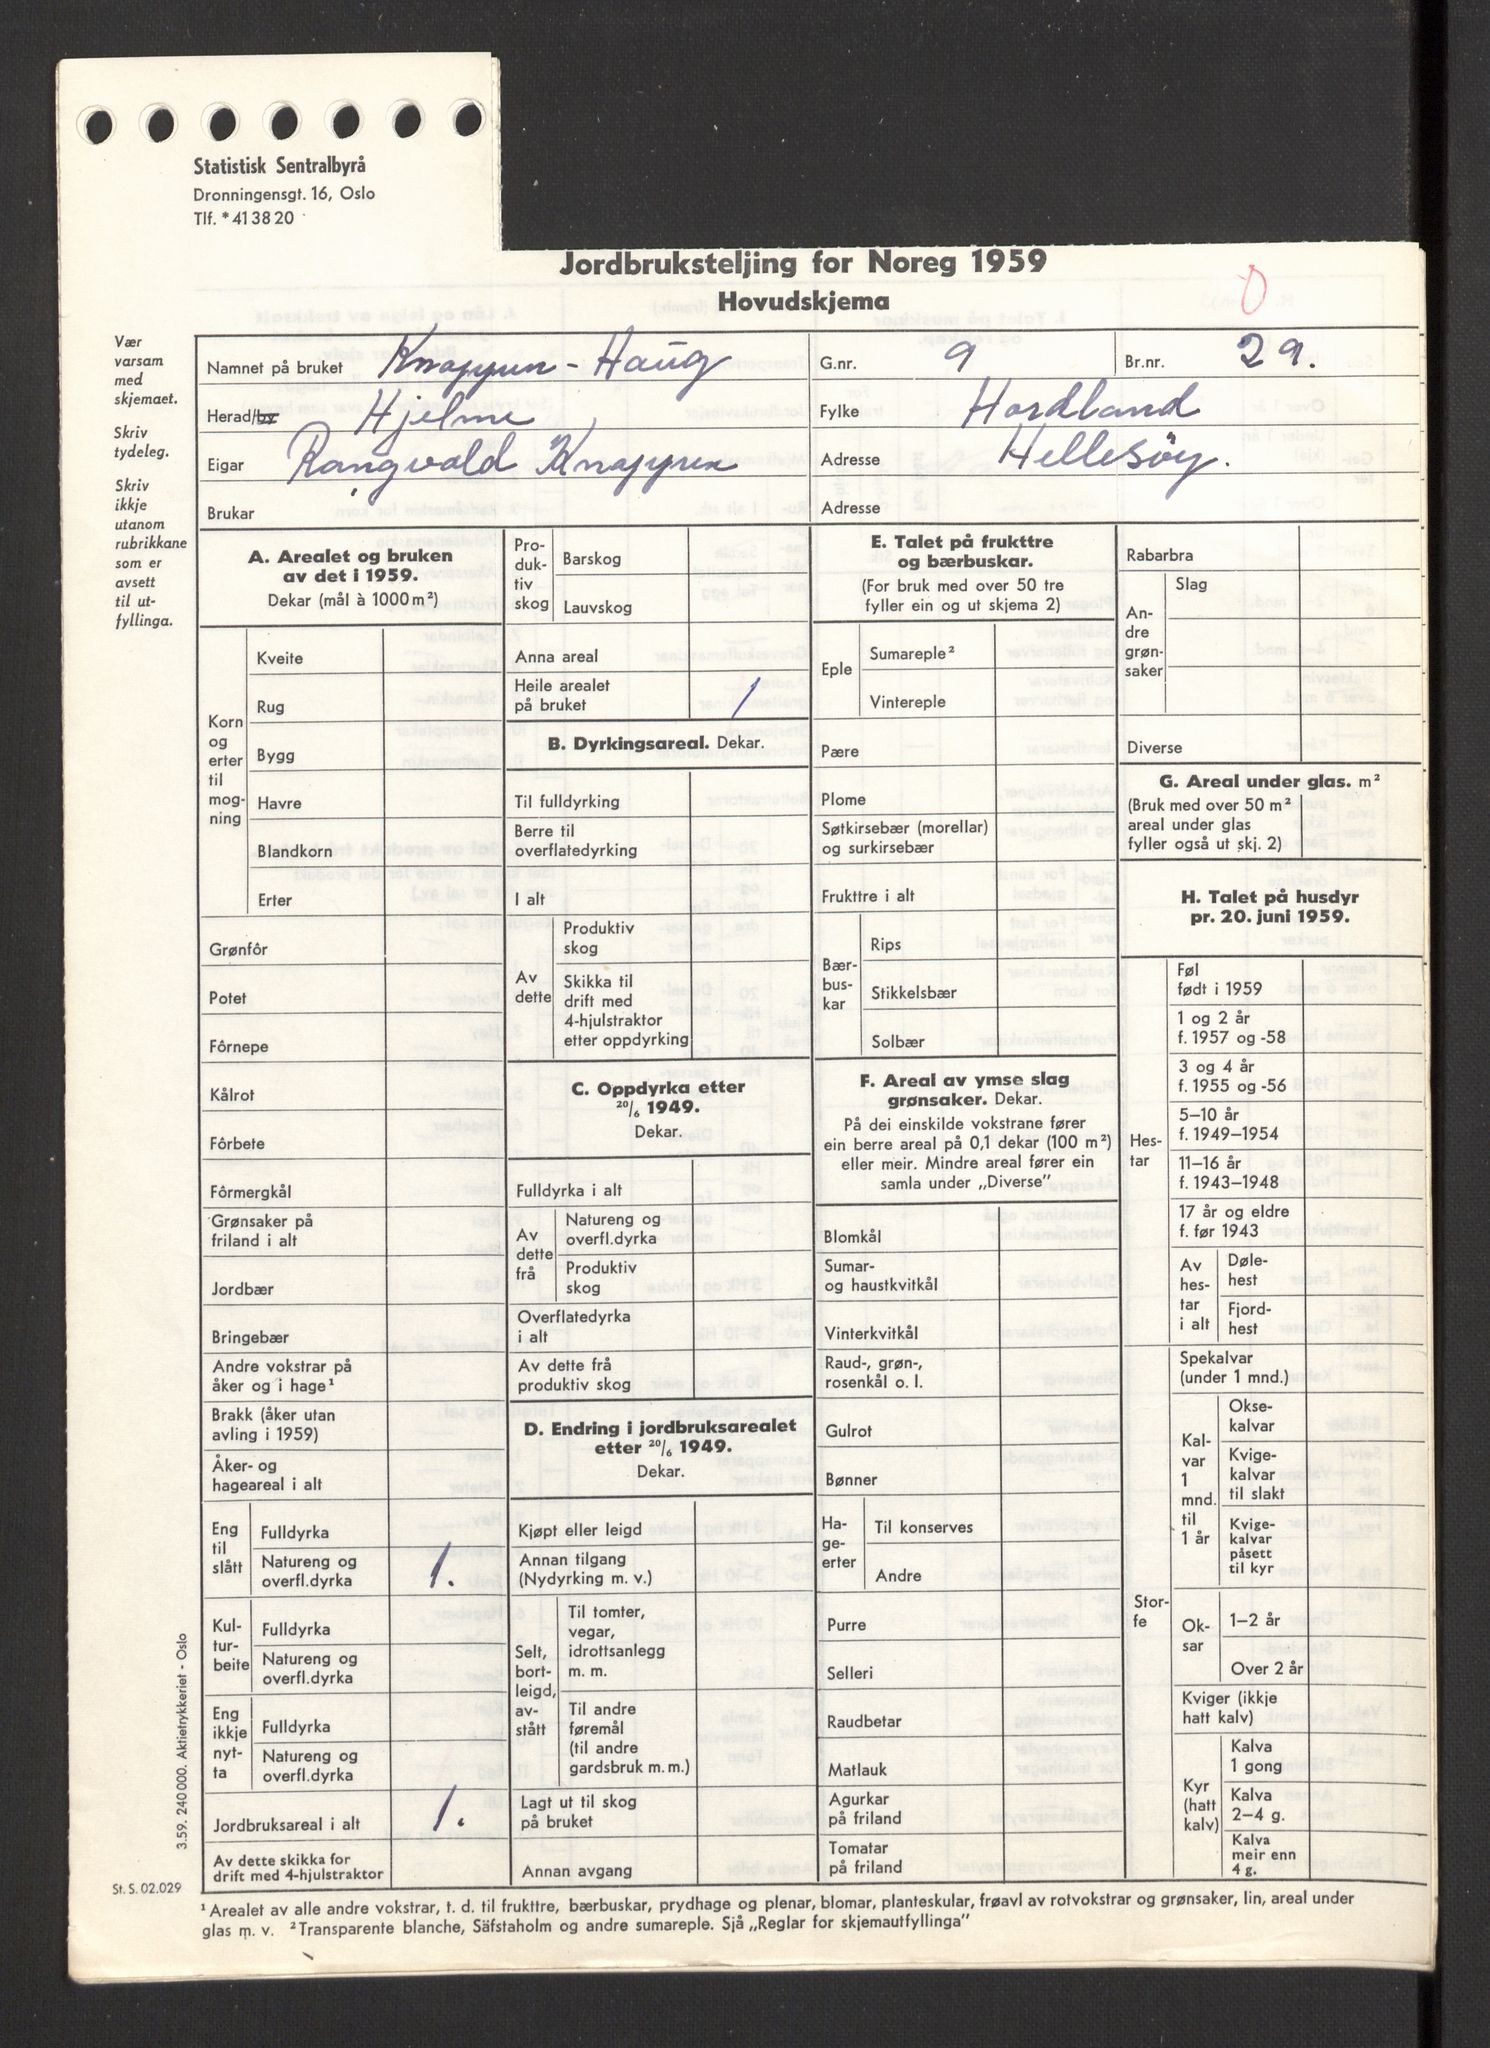 Statistisk Sentralbyrå
Dronningensgt. 16, Oslo
Tlf. *41 38 20
Jordbruksteljing for Noreg 1959
Hovudskjema
Vær
varsam
med
skjemaet.
Skriv
tydeleg.
Skriv
ikkje
utanom
rubrikkane
som er
avsett
til ut-
fyllinga.
Namnet på bruket Knappen - Haug G.nr. 9 Br.nr. 29.
Herad/by Hjelme Fylke Hordland
Eigar Rangvald Knappen Adresse Hellesöy.
Brukar Adresse
A. Arealet og bruken
av det i 1959.
Dekar (mål à 1000 m²)
Korn
og
erter
til
mog-
ning
Kveite
Rug
Bygg
Havre
Blandkorn
Erter
Grønfôr
Potet
Fôrnepe
Kålrot
Fôrbete
Fôrmergkål
Grønsaker på
friland i alt
Jordbær
Bringebær
Andre vokstrar på
åker og i hage¹
Brakk (åker utan
avling i 1959)
Åker- og
hageareal i alt
Eng
til
slått
Fulldyrka
Natureng og
overfl.dyrka 1.
Kul-
tur-
beite
Fulldyrka
Natureng og
overfl.dyrka
Eng
ikkje
nyt-
ta
Fulldyrka
Natureng og
overfl.dyrka
Jordbruksareal i alt 1.
Av dette skikka for
drift med 4-hjulstraktor
Pro-
duk-
tiv
skog
Barskog
Lauvskog
Anna areal
Heile arealet
på bruket 1
B. Dyrkingsareal. Dekar.
Til fulldyrking
Berre til
overflatedyrking
I alt
Av
dette
Produktiv
skog
Skikka til
drift med
4-hjulstraktor
etter oppdyrking
C. Oppdyrka etter
20/6 1949.
Dekar.
Fulldyrka i alt
Av
dette
frå
Natureng og
overfl.dyrka
Produktiv
skog
Overflatedyrka
i alt
Av dette frå
produktiv skog
D. Endring i jordbruksarealet
etter 20/6 1949.
Dekar.
Kjøpt eller leigd
Annan tilgang
(Nydyrking m. v.)
Selt,
bort-
leigd,
av-
stått
Til tomter,
vegar,
idrottsanlegg
m. m.
Til andre
føremål
(til andre
gardsbruk m. m.)
Lagt ut til skog
på bruket
Annan avgang
E. Talet på frukttre
og bærbuskar.
(For bruk med over 50 tre
fyller ein og ut skjema 2)
Eple
Sumareple²
Vintereple
Pære
Plome
Søtkirsebær (morellar)
og surkirsebær
Frukttre i alt
Bær-
bus-
kar
Rips
Stikkelsbær
Solbær
F. Areal av ymse slag
grønsaker. Dekar.
På dei einskilde vokstrane fører
ein berre areal på 0,1 dekar (100 m²)
eller meir. Mindre areal fører ein
samla under „Diverse”
Blomkål
Sumar-
og haustkvitkål
Vinterkvitkål
Raud-, grøn-,
rosenkål o. l.
Gulrot
Bønner
Ha-
ge-
erter
Til konserves
Andre
Purre
Selleri
Raudbetar
Matlauk
Agurkar
på friland
Tomatar
på friland
Rabarbra
An-
dre
grøn-
saker
Slag
Diverse
G. Areal under glas. m²
(Bruk med over 50 m²
areal under glas
fyller også ut skj. 2)
H. Talet på husdyr
pr. 20. juni 1959.
Hes-
tar
Føl
født i 1959
1 og 2 år
f. 1957 og -58
3 og 4 år
f. 1955 og -56
5–10 år
f. 1949–1954
11–16 år
f. 1943–1948
17 år og eldre
f. før 1943
Av
hes-
tar
i alt
Døle-
hest
Fjord-
hest
Stor-
fe
Spekalvar
(under 1 mnd.)
Kal-
var
1
mnd.
til
1 år
Okse-
kalvar
Kvige-
kalvar
til slakt
Kvige-
kalvar
påsett
til kyr
Ok-
sar
1–2 år
Over 2 år
Kviger (ikkje
hatt kalv)
Kyr
(hatt
kalv)
Kalva
1 gong
Kalva
2–4 g.
Kalva
meir enn
4 g.
3.59. 240 000. Aktietrykkeriet - Oslo
St. S. 02.029
¹ Arealet av alle andre vokstrar, t. d. til frukttre, bærbuskar, prydhage og plenar, blomar, planteskular, frøavl av rotvokstrar og grønsaker, lin, areal under
glas m. v. ² Transparente blanche, Säfstaholm og andre sumareple. Sjå „Reglar for skjemautfyllinga”